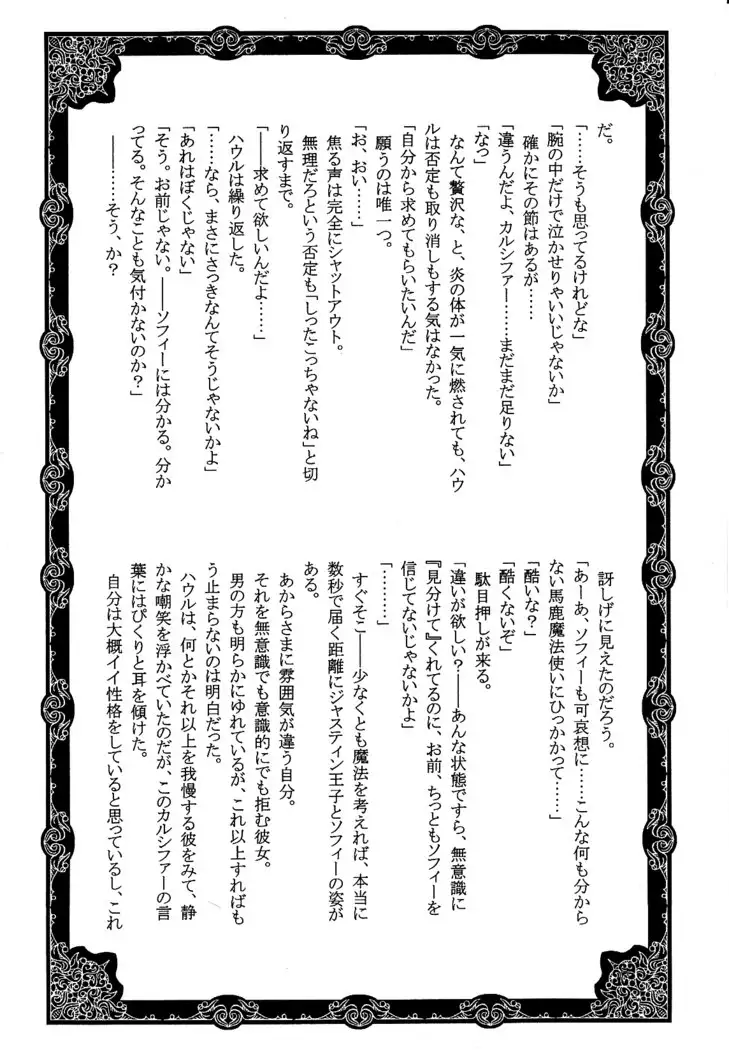 だ。
「……そうも思ってるけれどな」
「腕の中だけで泣かせりゃいいじゃないか」
　確かにその節はあるが……
「違うんだよ、カルシファー……まだまだ足りない」
「なっ」
　なんて贅沢な、と、炎の体が一気に燃されても、ハウ
ルは否定も取り消しもする気はなかった。
「自分から求めてもらいたいんだ」
　願うのは唯一つ。
「お、おい……」
　焦る声は完全にシャットアウト。
　無理だろという否定も「しったこっちゃないね」と切
り返すまで。
「――求めて欲しいんだよ……」
　ハウルは繰り返した。
「……なら、まさにさっきなんてそうじゃないかよ」
「あれはぼくじゃない」
「そう。お前じゃない。――ソフィーには分かる。分か
ってる。そんなことも気付かないのか？」
　――……そう、か？
　訝しげに見えたのだろう。
「あーあ、ソフィーも可哀想に……こんな何も分から
ない馬鹿魔法使いにひっかかって……」
「酷いな？」
「酷くないぞ」
　駄目押しが来る。
「違いが欲しい？――あんな状態ですら、無意識に
『見分けて』くれてるのに、お前、ちっともソフィーを
信じてないじゃないかよ」
「………」
　すぐそこ――少なくとも魔法を考えれば、本当に
数秒で届く距離にジャスティン王子とソフィーの姿が
ある。
　あからさまに雰囲気が違う自分。
　それを無意識でも意識的にでも拒む彼女。
　男の方も明らかにゆれているが、これ以上すればも
う止まらないのは明白だった。
　ハウルは、何とかそれ以上を我慢する彼をみて、静
かな嘲笑を浮かべていたのだが、このカルシファーの言
葉にはぴくりと耳を傾けた。
　自分は大概イイ性格をしていると思っているし、これ